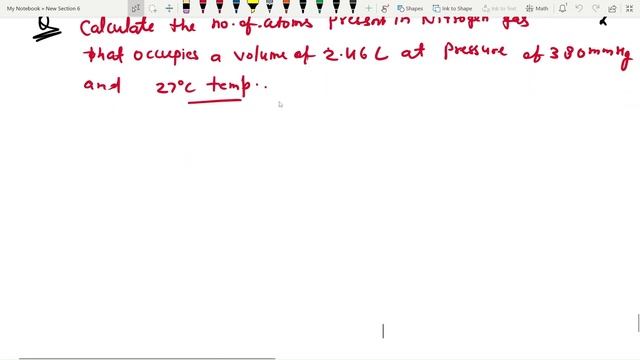 My Notebook » New Section 6
Shapes
Ink to Shape
Ink to Text
Math
Q Calculate the no. of. atoms present in Nitrogen gas
that occupies a volume of 2.46 L at pressure of 380 mmHg
and 27°C temp..